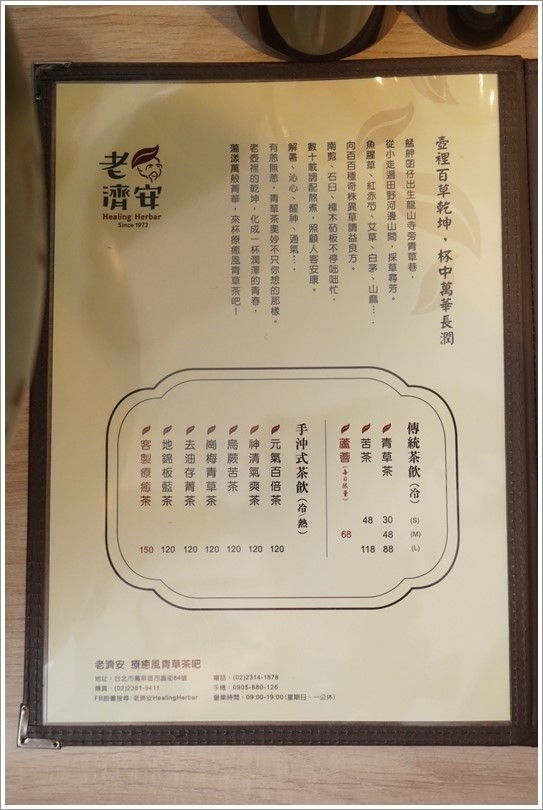 壺裡百草乾坤，杯中萬華長潤
艋舺囝仔出生龍山寺旁青草巷，
從小走遍田野河邊山間，採草尋芳。
魚腥草、紅赤芍、艾草、白茅、山麻…，
向百百種奇株異草請益良方。
南剪、石臼、樟木砧板不停咄咄忙，
數十載調配熬煮，照顧人客安康。
解暑、沁心、醒神、通氣…，
有恙無恙，青草茶奧妙不只你想的那樣。
老壺裡的乾坤，化成一杯潤澤的青春，
蕩漾萬般菁華，來杯療癒風青草茶吧！
老濟安
Healing Herbar
Since 1972
傳統茶飲（冷） (S) (M) (L)
青草茶 30 48 88
苦茶 48 118
蘆薈（每日限量） 68
手沖式茶飲（冷/熱）
元氣百倍茶 120
神清氣爽茶 120
烏蕨苦茶 120
崗梅青草茶 120
去油存菁茶 120
地錦板藍茶 120
客製療癒茶 150
老濟安 療癒風青草茶吧
地址：台北市萬華區西昌街84號
電話：(02)2314-1878
傳真：(02)2381-9411
手機：0905-880-126
FB臉書搜尋-老濟安HealingHerbar
營業時間：09:00-19:00(星期日、一公休)